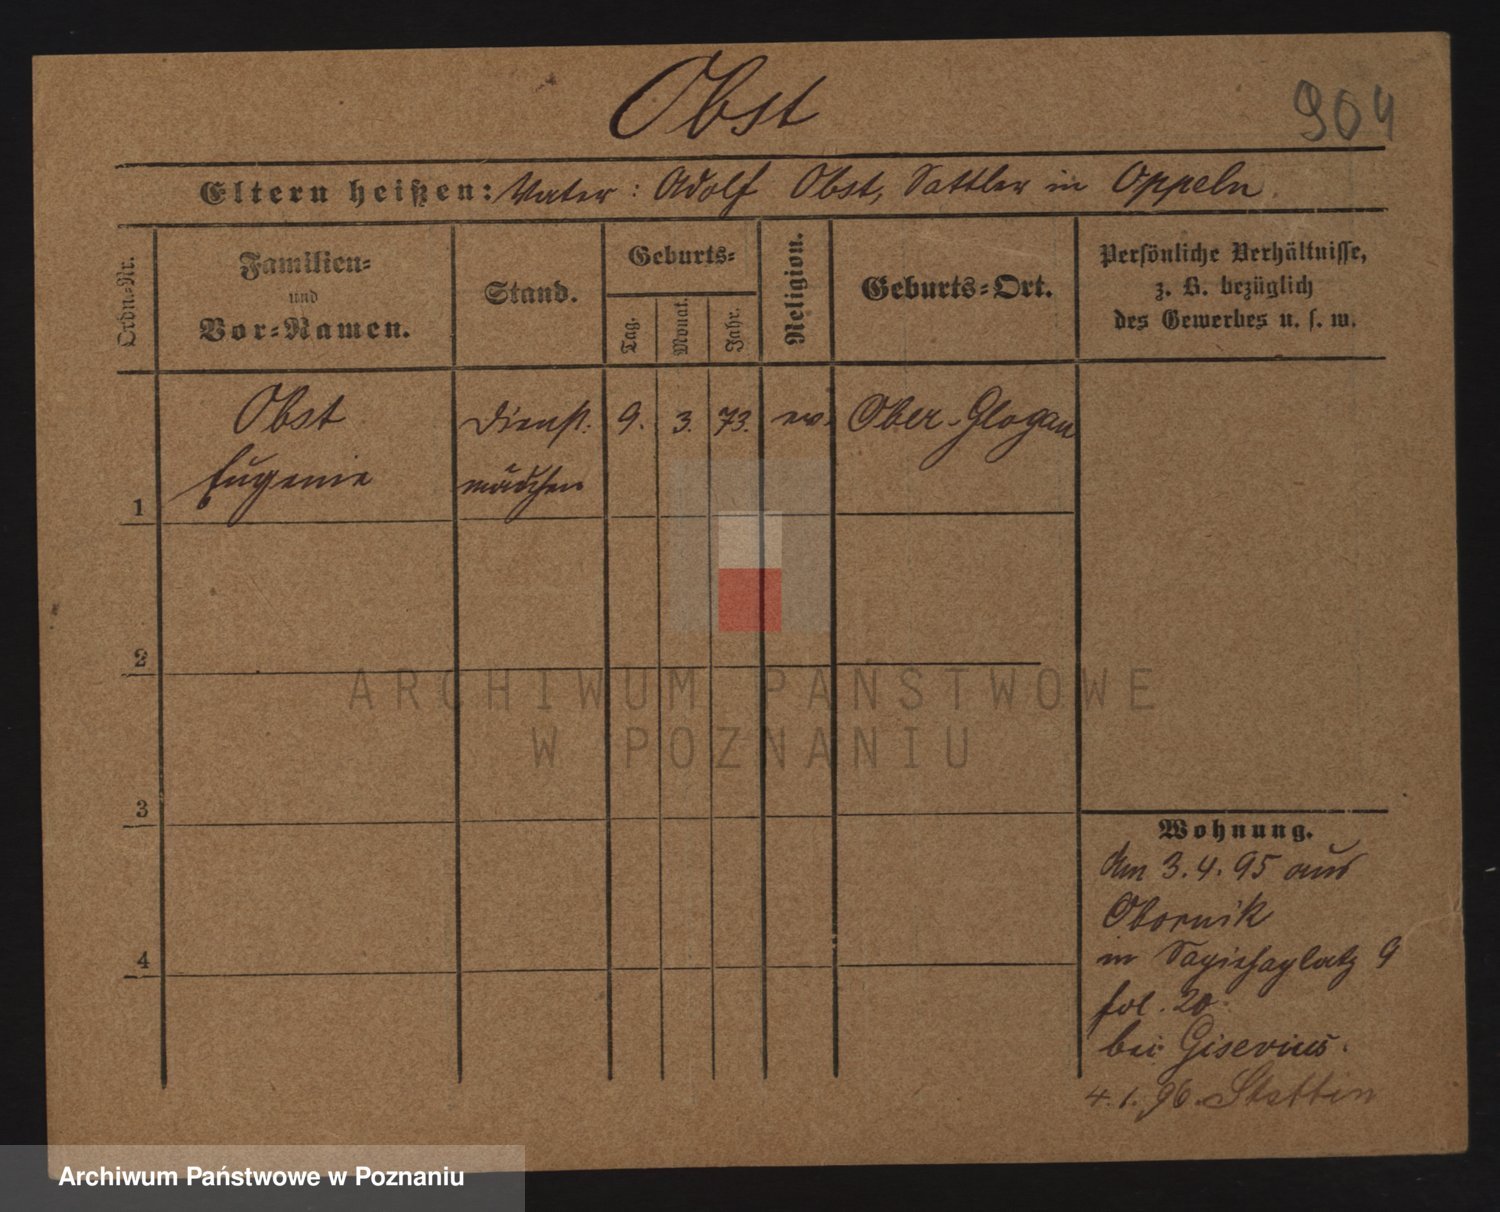 Obst
904
Eltern heißen: Vater: Adolf Obst, Sattler in Oppeln.
Ordn.-Nr.
Familien-
und
Vor-Namen.
Stand.
Geburts-
Tag.
Monat.
Jahr.
Religion.
Geburts-Ort.
Persönliche Verhältnisse,
z. B. bezüglich
des Gewerbes u. s. w.
Obst Dienst- 9. 3. 73. ev. Ober-Glogau
1 Eugenie mädchen
2
3
4
Wohnung.
Am 3.4.95 aus
Obornik
in Sapiehaplatz 9
fol. 20
bei Gisevius.
4.1.96. Stettin
ARCHIWUM PAŃSTWOWE
W POZNANIU
Archiwum Państwowe w Poznaniu